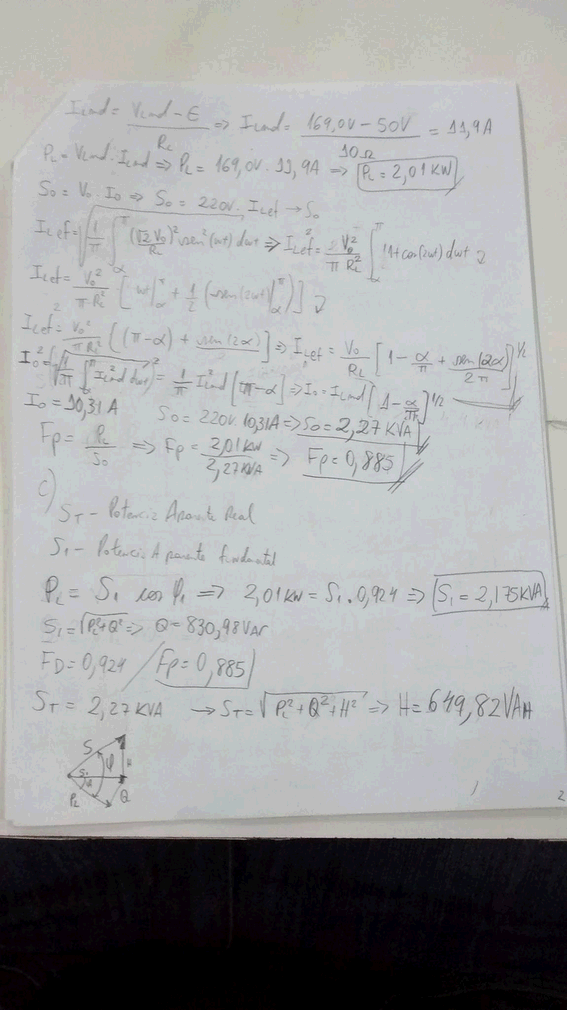 I_Lmd = (V_Lmd - E)/R_L => I_Lmd = (169,0V - 50V)/10Ω = 11,9A
P_L = V_Lmd . I_Lmd => P_L = 169,0V . 11,9A => P_L = 2,01 KW
S_0 = V_0 . I_0 => S_0 = 220V. I_Lef → S_0
I_Lef = √(1/π ∫_α^π (√2 V_0/R_L)² sen²(wt) dwt => I_Lef² = V_0²/(π R_L²) ∫_α^π (1+cos(2wt) dwt
I_Lef² = V_0²/(π R_L²) [wt|_α^π + 1/2 (sen(2wt)|_α^π)]
I_Lef² = V_0²/(π R_L²) [(π-α) + sen(2α)] => I_Lef = V_0/R_L [1 - α/π + sen(2α)/2π]^1/2
I_0² = (√(1/π ∫_α^π I_Lmd² dwt))² = 1/π I_Lmd² [π-α] => I_0 = I_Lmd [1 - α/π]^1/2
I_0 = 10,31 A
S_0 = 220V. 10,31A => S_0 = 2,27 KVA
Fp = P_L/S_0 => Fp = 2,01 KW/2,27 KVA => Fp = 0,885
C)
S_T - Potencia Aparente Real
S_1 - Potencia Aparente fundamental
P_L = S_1 cos φ_1 => 2,01 KW = S_1 . 0,924 => S_1 = 2,175 KVA
S_1 = √(P_L²+Q²) => Q = 830,98 VAr
FD = 0,924 / Fp = 0,885
S_T = 2,27 KVA → S_T = √(P_L² + Q² + H²) => H = 649,82 VAH
S
φ
H
S_1
P_L
Q
2